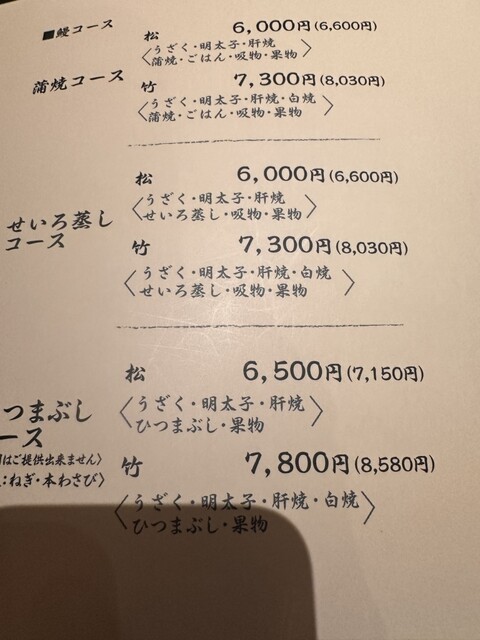 ■鰻コース
蒲焼コース
松 6,000円(6,600円)
〈うざく・明太子・肝焼
蒲焼・ごはん・吸物・果物〉
竹 7,300円(8,030円)
〈うざく・明太子・肝焼・白焼
蒲焼・ごはん・吸物・果物〉
せいろ蒸し
コース
松 6,000円(6,600円)
〈うざく・明太子・肝焼
せいろ蒸し・吸物・果物〉
竹 7,300円(8,030円)
〈うざく・明太子・肝焼・白焼
せいろ蒸し・吸物・果物〉
つまぶし
ース
はご提供出来ません〉
:ねぎ・本わさび〉
松 6,500円(7,150円)
〈うざく・明太子・肝焼
ひつまぶし・果物〉
竹 7,800円(8,580円)
〈うざく・明太子・肝焼・白焼
ひつまぶし・果物〉